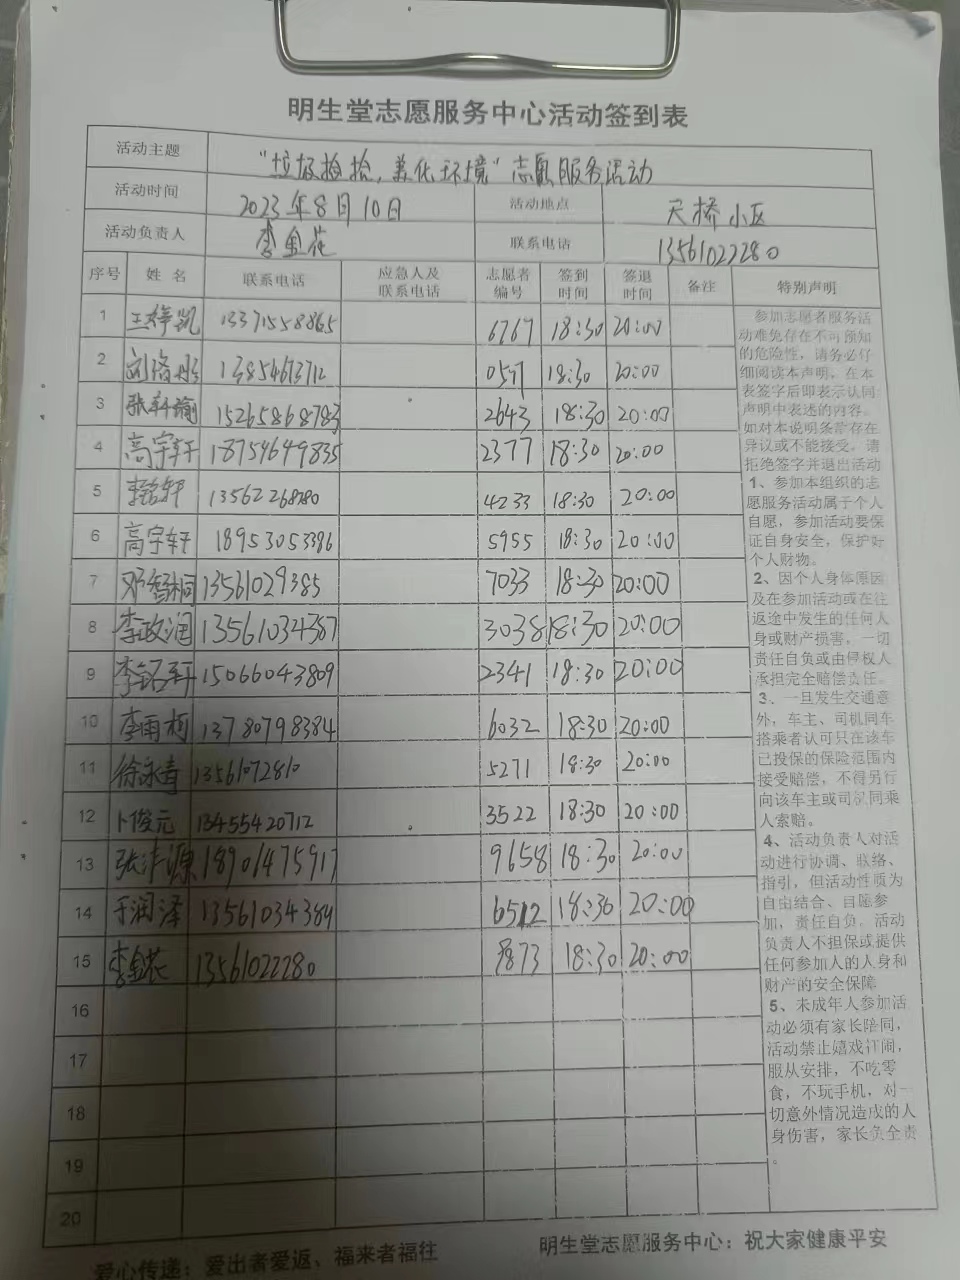 明生堂志愿服务中心活动签到表
活动主题 “垃圾捡拾，美化环境”志愿服务活动
活动时间 2023年8月10日 活动地点 天桥小区
活动负责人 李金花 联系电话 13561022280
序号 姓名 联系电话 应急人及联系电话 志愿者编号 签到时间 签退时间 备注 特别声明
1 凯 13371558865 6767 18:30 20:00
2 刘 13854673712 18:30 20:00
3 张 15265868783 2643 18:30 20:00
4 高宇轩 18754649835 2377 18:30 20:00
5 李 13562268780 4233 18:30 20:00
6 高宇轩 18953053386 5955 18:30 20:00
7 邓智桐 13561029385 7033 18:30 20:00
8 李政润 13561034387 3038 18:30 20:00
9 李铭轩 15066043809 2341 18:30 20:00
10 李雨柯 13780798384 6032 18:30 20:00
11 徐永青 13561072810 5271 18:30 20:00
12 卜俊元 13455420712 3522 18:30 20:00
13 张沣源 18901475917 9658 18:30 20:00
14 于润泽 13561034384 6512 18:30 20:00
15 李金花 13561022280 18:30 20:00
16
17
18
19
20
参加志愿者服务活
动难免存在不可预知
的危险性，请务必仔
细阅读本声明，在本
表签字后即表示认同
声明中表述的内容。
如对本说明条款存在
异议或不能接受，请
拒绝签字并退出活动
1、参加本组织的志
愿服务活动属于个人
自愿，参加活动要保
证自身安全，保护好
个人财物。
2、因个人身体原因
及在参加活动或在往
返途中发生的任何人
身或财产损害，一切
责任自负或由侵权人
承担完全赔偿责任。
3、一旦发生交通意
外，车主、司机同车
搭乘者认可只在该车
已投保的保险范围内
接受赔偿，不得另行
向该车主或司机同乘
人索赔。
4、活动负责人对活
动进行协调、联络、
指引，但活动性质为
自由结合、自愿参
加，责任自负。活动
负责人不担保或提供
任何参加人的人身和
财产的安全保障
5、未成年人参加活
动必须有家长陪同，
活动禁止嬉戏打闹，
服从安排，不吃零
食，不玩手机，对一
切意外情况造成的人
身伤害，家长负全责
。
爱心传递：爱出者爱返、福来者福往 明生堂志愿服务中心：祝大家健康平安